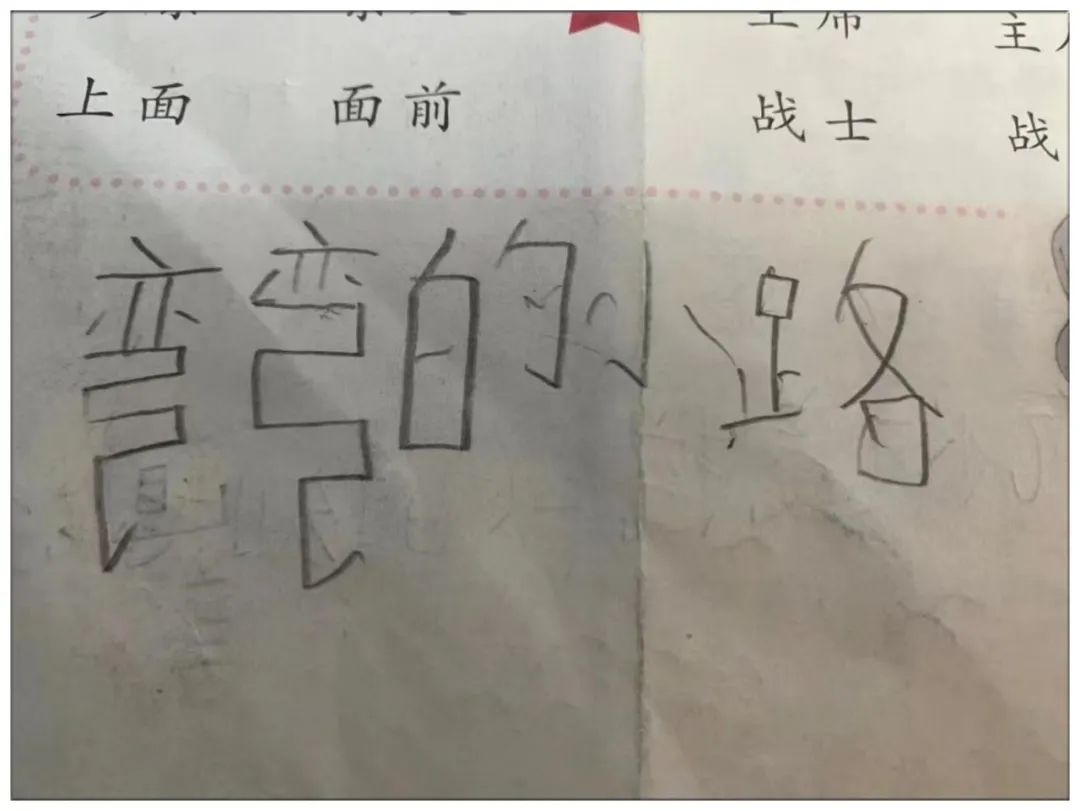 主席
上面 面前 战士 战
弯弯的路